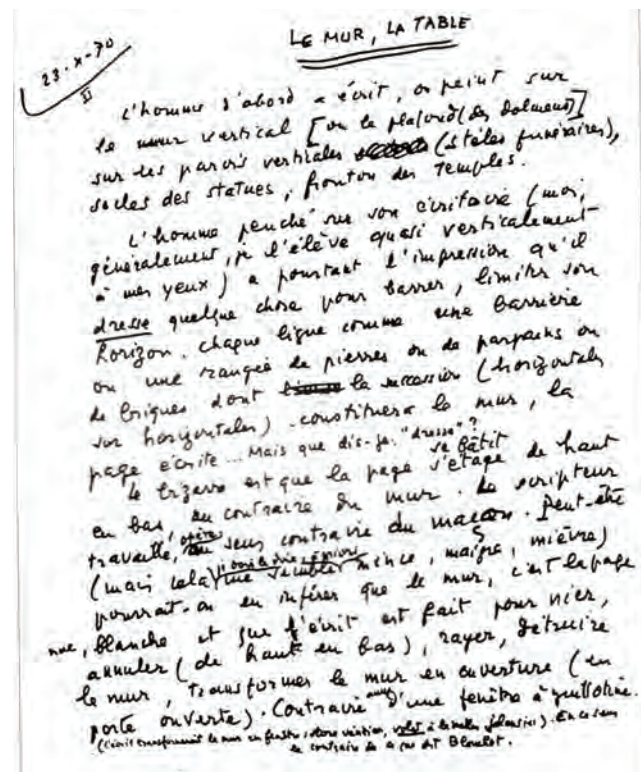 LE MUR, LA TABLE
23-X-70
II
L'homme d'abord a écrit, ou peint sur
le mur vertical [ou le plafond (des dolmens)]
sur les parois verticales (stèles funéraires),
socles des statues, fronton des Temples.
L'homme penché sur son écritoire (moi,
généralement, je l'élève quasi verticalement
à mes yeux) a pourtant l'impression qu'il
dresse quelque chose pour barrer, limiter son
horizon. Chaque ligne comme une barrière
ou une rangée de pierres ou de parpaings ou
de briques dont la succession (horizontales
sur horizontales) constituera le mur, la
page écrite... Mais que dis-je: "dresse"?
se bâtit
Le bizarre est que la page s'étage de haut
en bas, au contraire du mur. Le scripteur
travaille, opère au sens contraire du maçon. Peut-être
(mais cela me semble mince, maigre, mièvre)
pourrait-on en inférer que le mur, c'est la page
nue, blanche et que l'écrit est fait pour nier,
annuler (de haut en bas), rayer, détruire
le mur, transformer le mur en ouverture (en
porte ouverte). Contraire d'une fenêtre à guillotine.
(L'écrit transformant le mur en fenêtre, store vénitien, volet à lamelles). En ce sens
le contraire de ce que dit